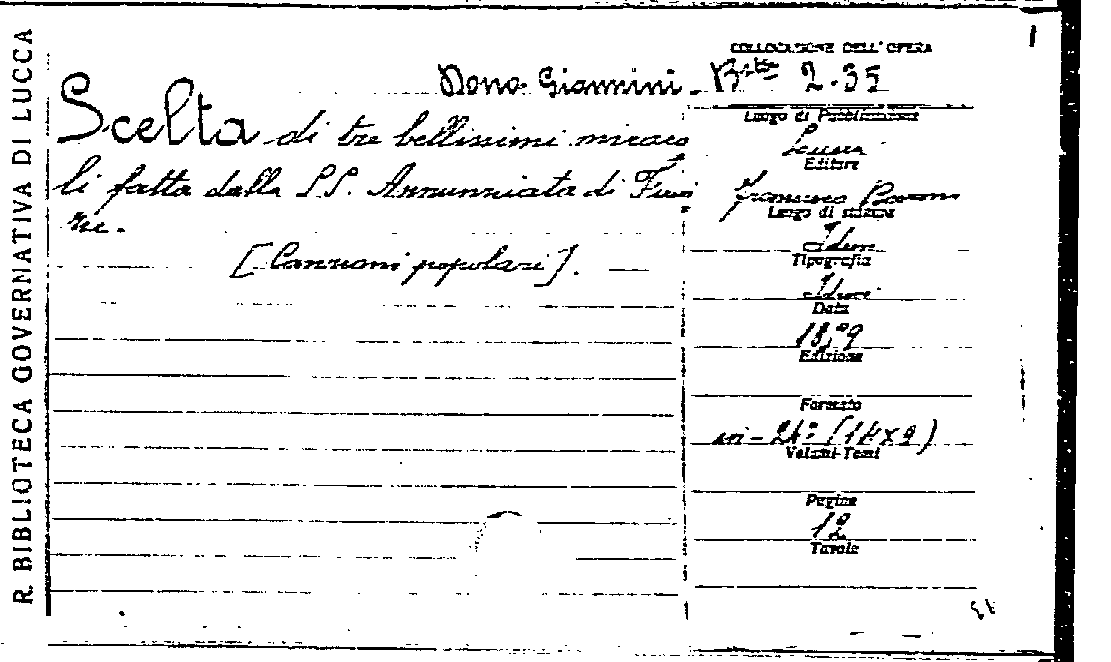 R. BIBLIOTECA GOVERNATIVA DI LUCCA
COLLOCAZIONE DELL'OPERA
Dono Giannini - B.ta 2.35
Scelta di tre bellissimi miraco
li fatta dalla SS. Annunziata di Firen
ze.
[Canzoni popolari].
Luogo di Pubblicazione
Lucca
Editore
Francesco
Luogo di stampa
Idem
Tipografia
Idem
Data
Edizione
Formato
in-24° (14x9)
Volumi-Tomi
Pagine
12
Tavole